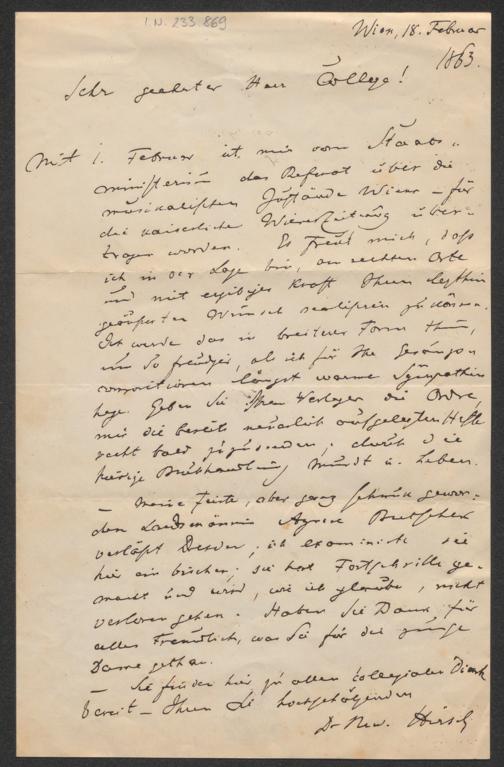 I.N. 233.869
Wien, 18. Februar
1863.
Sehr geehrter Herr College!
Mit 1. Februar ist mir vom Staats-
ministerium das Referat über die
musikalischen Zustände Wiens – für
die kaiserliche Wiener Zeitung über-
tragen worden. Es freut mich, daß
ich in der Lage bin, am rechten Orte
und mit Kraft Ihren letzthin
geäußerten Wunsch realisiren zu können.
Ich werde das in breiterer Form thun,
um so freudiger, als ich für Ihre Gesangs-
compositionen längst warme Sympathien
hege. Geben Sie Ihrem Verleger die Ordre,
mir die bereits neuerlich aufgelegten Hefte
recht bald zuzusenden; durch die
hiesige Buchhandlung u.
– Meine, aber ganz schmuck gewor-
dene Landsmännin Agnes
verläßt Dresden; ich examinirte sie
hier ein bischen; sie hat Fortschritte ge-
macht und wird, wie ich glaube, nicht
verloren gehen. Haben Sie Dank für
alles Freundliche, was Sie für die junge
Dame gethan.
– Sie finden hier zu allen collegialen Dienst
bereit – Ihren Sie hochschätzenden
Dr Hirsch